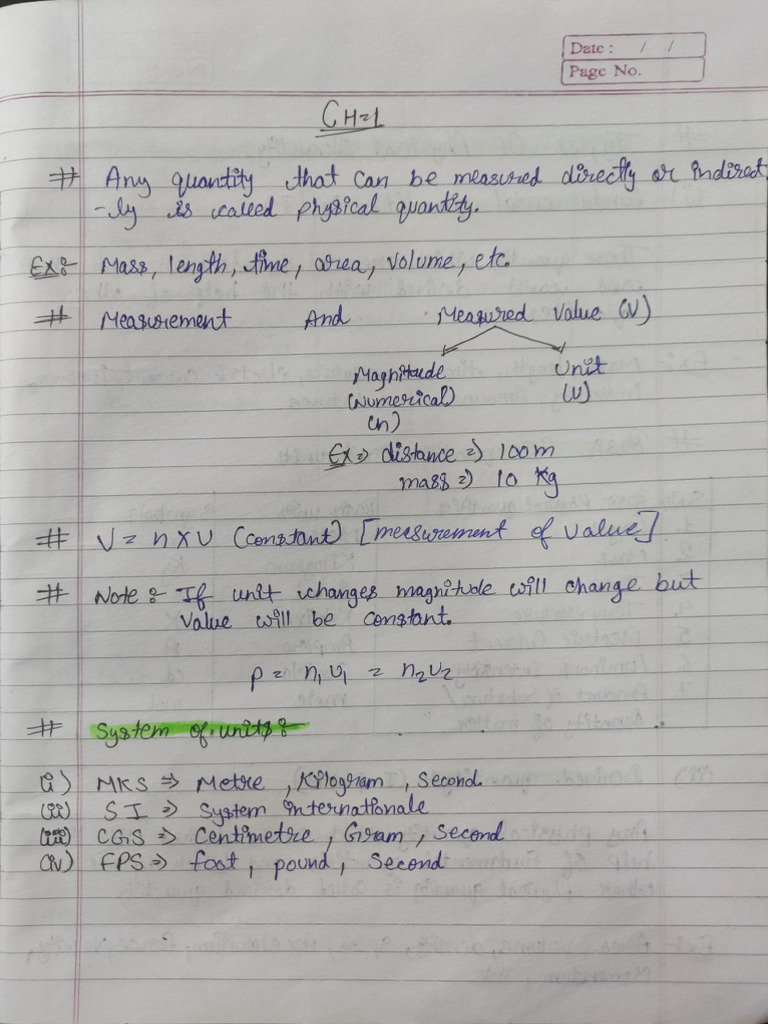 Date : / /
Page No.
CH=1
# Any quantity that can be measured directly or indirect
-ly is called physical quantity.
Ex: Mass, length, time, area, volume, etc.
# Measurement And Measured Value (V)
Magnitude Unit
(Numerical) (U)
(n)
Ex => distance => 100m
mass => 10 Kg
# V = n x U (constant) [measurement of value]
# Note : If unit changes magnitude will change but
Value will be constant.
P = n₁ u₁ = n₂ u₂
# System of units :
(i) MKS => Metre, Kilogram, Second.
(ii) S I => System internationale
(iii) CGS => Centimetre, Gram, Second
(iv) FPS => foot, pound, Second